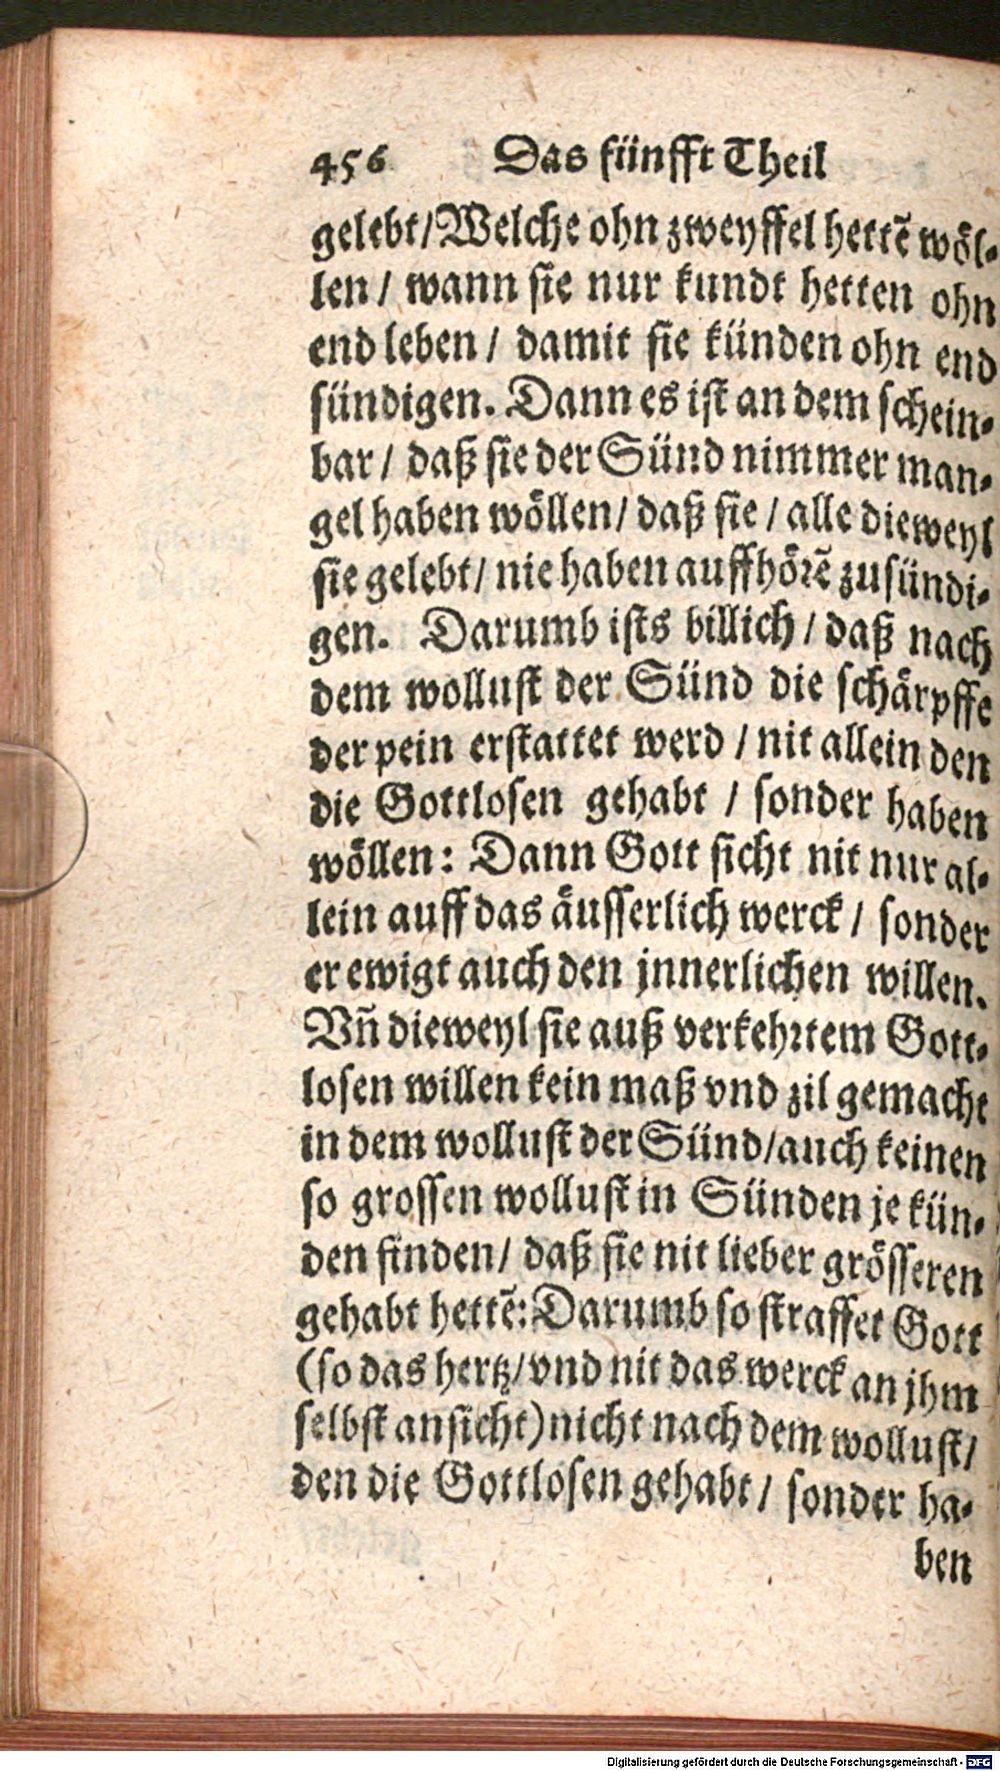 456 Das fünfft Theil
gelebt/Welche ohn zweyffel hettẽ wöl-
len/ wann sie nur kundt hetten ohn
end leben/ damit sie künden ohn end
sündigen. Dann es ist an dem schein-
bar/ daß sie der Sünd nimmer man-
gel haben wöllen/ daß sie/ alle dieweyl
sie gelebt/ nie haben auffhörẽ zusündi-
gen. Darumb ists billich/ daß nach
dem wollust der Sünd die schärpffe
der pein erstattet werd/ nit allein den
die Gottlosen gehabt/ sonder haben
wöllen: Dann Gott sicht nit nur al-
lein auff das äusserlich werck/ sonder
er ewigt auch den jnnerlichen willen.
Vñ dieweyl sie auß verkehrtem Gott-
losen willen kein maß vnd zil gemacht
in dem wollust der Sünd/auch keinen
so grossen wollust in Sünden je kün-
den finden/ daß sie nit lieber grösseren
gehabt hettẽ: Darumb so straffet Gott
(so das hertz/vnd nit das werck an jhm
selbst ansicht) nicht nach dem wollust/
den die Gottlosen gehabt/ sonder ha-
ben
Digitalisierung gefördert durch die Deutsche Forschungsgemeinschaft - DFG